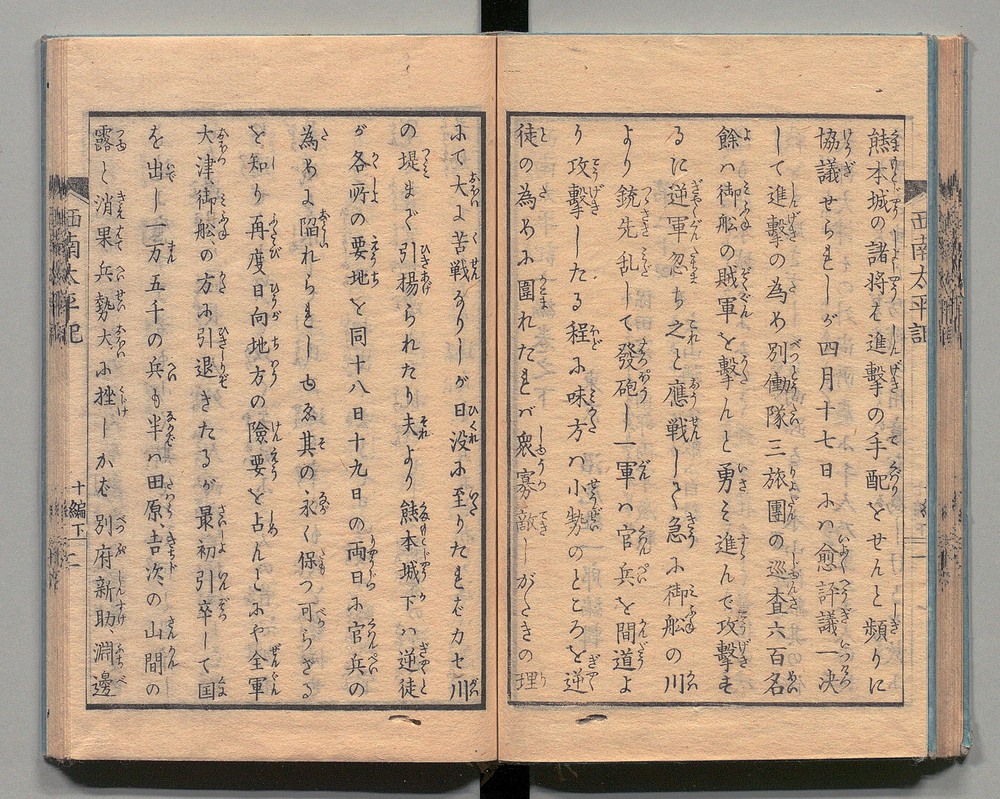 熊本城の諸将も進撃の手配をせんと頻りに
協議せられしが四月十七日にハ愈評議一决
して進撃の為め別働隊三旅團の巡査六百名
餘ハ御舩の賊軍を撃んと勇ミ進んで攻撃す
るに逆軍忽ち之と應戦しく急に御舩の川
より銃先乱して發砲し一軍ハ官兵を間道よ
り攻撃したる程に味方ハ小勢のところを逆
徒の為めに圍れたれバ衆寡敵しがたきの理
にて大に苦戦なりしが日没に至りたれバカセ川
の堤まで引揚られたり夫より熊本城下ハ逆徒
が各所の要地を同十八日十九日の両日に官兵の
為めに陥れられし故其の永く保つ可らざる
を知り再度日向地方の險要を占んとにや全軍
大津御舩の方に引退きたるが最初引卒して国
を出し一万五千の兵も半ハ田原、吉次の山間の
露と消果兵勢大に挫しかバ別府新助、淵邊
西南太平記
十編下
二
西南太平記